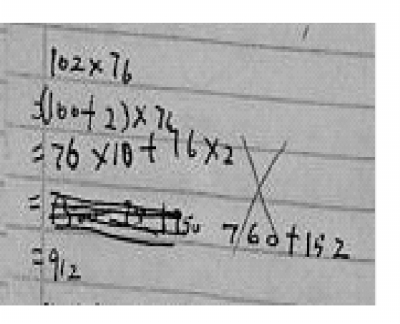 102×76
=(100+2)×76
=76×10+76×2
= 760+152
=912